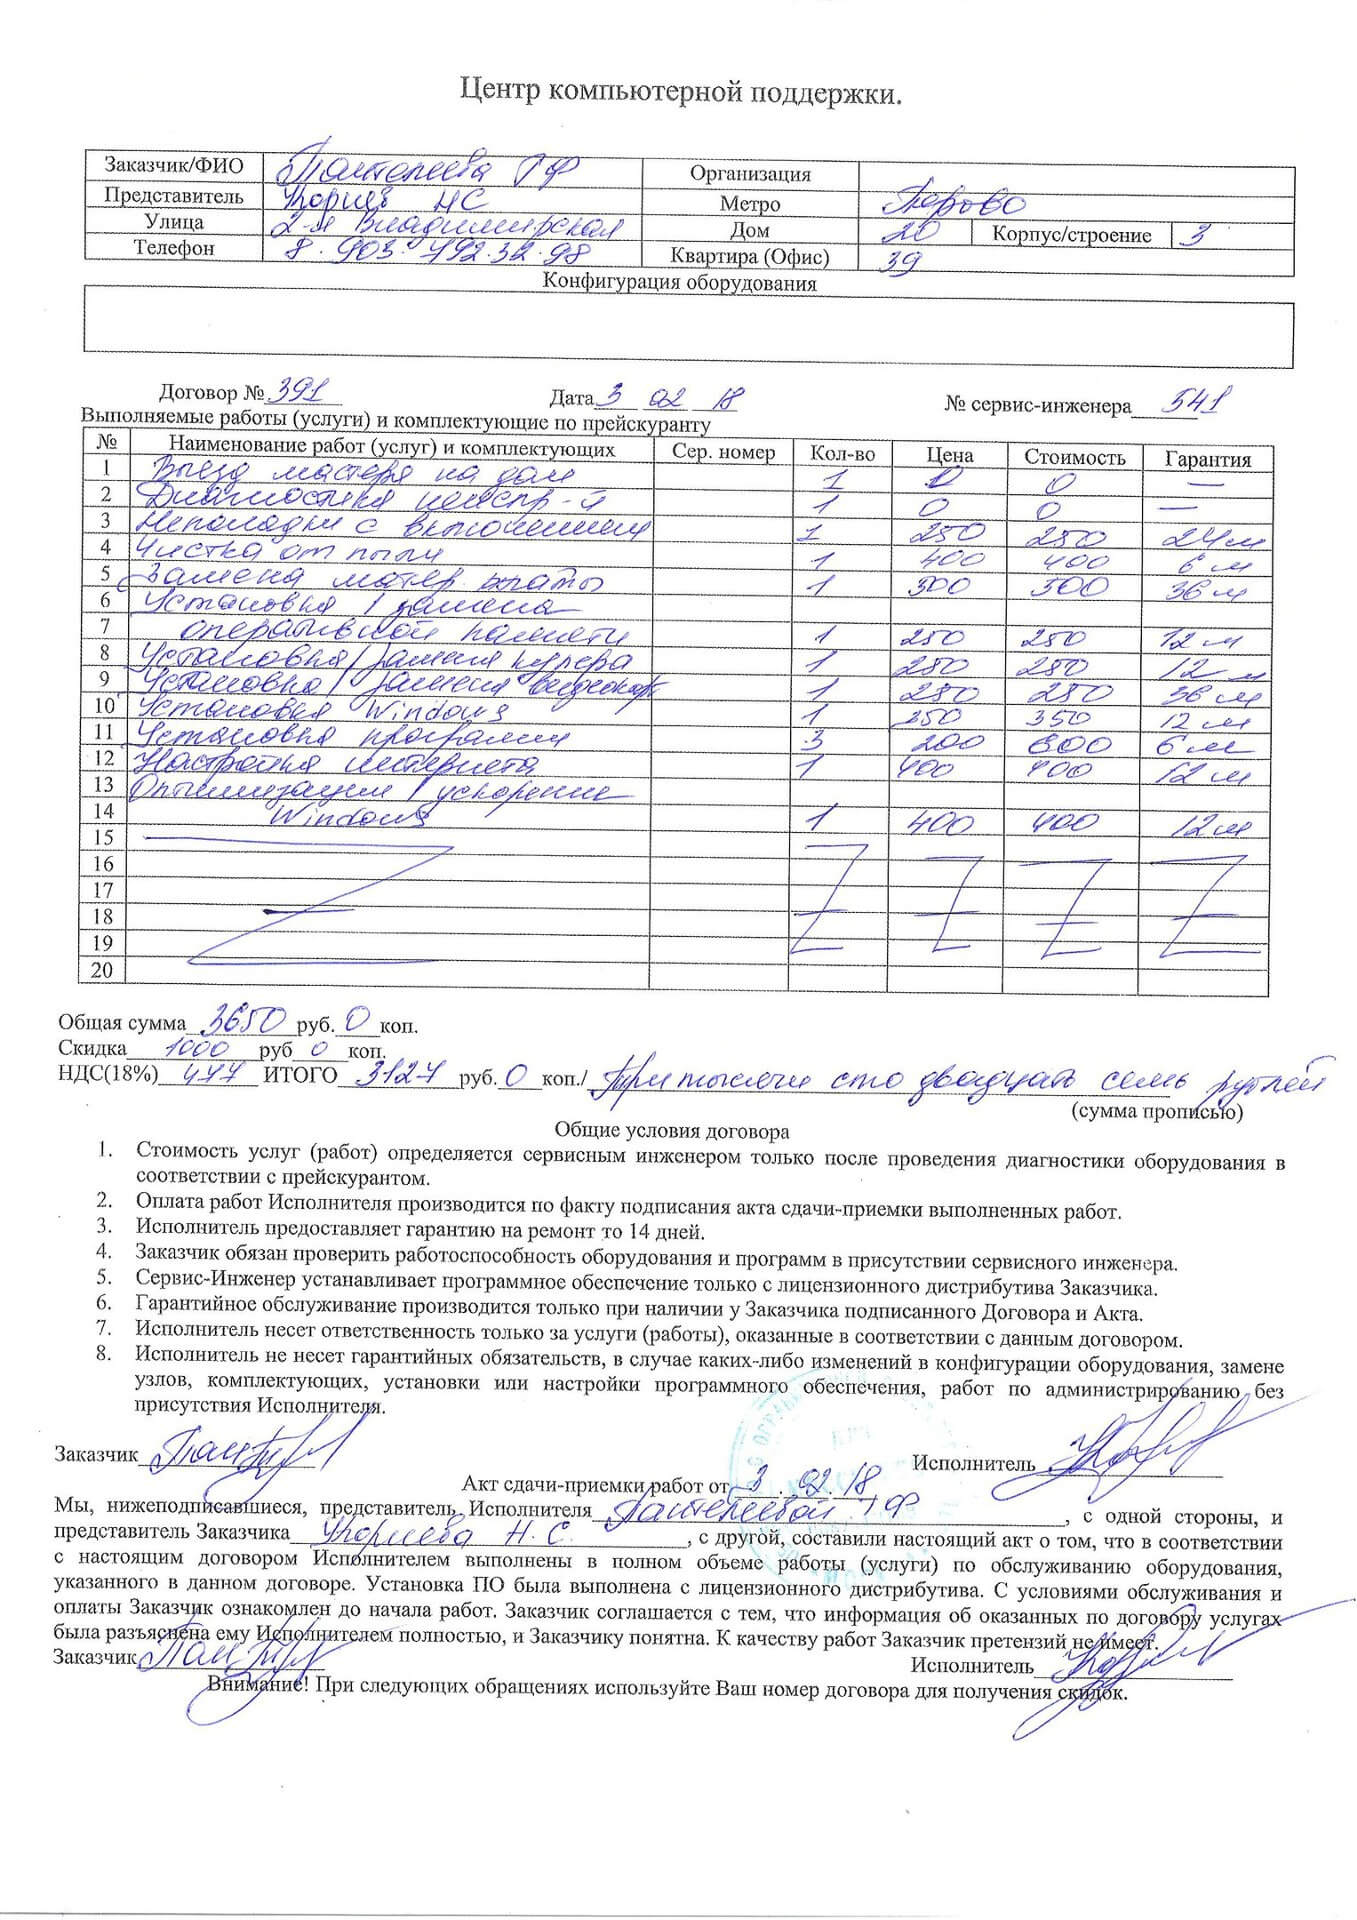 Центр компьютерной поддержки.
Заказчик/ФИО Пантелеева Г Ф Организация
Представитель Корнев НС Метро Перово
Улица 2-я Владимирская Дом 20 Корпус/строение 3
Телефон 8.903.792.32.98 Квартира (Офис) 39
Конфигурация оборудования
Договор № 391 Дата 3 02 18 № сервис-инженера 541
Выполняемые работы (услуги) и комплектующие по прейскуранту
№ Наименование работ (услуг) и комплектующих Сер. номер Кол-во Цена Стоимость Гарантия
1 Выезд мастера на дом 1 0 0 —
2 Диагностика неиспр-й 1 0 0 —
3 Неполадки с включением 1 250 250 24 м
4 Чистка от пыли 1 400 400 6 м
5 Замена матер. платы 1 500 500 36 м
6 Установка / замена
7 оперативной памяти 1 250 250 12 м
8 Установка / замена кулера 1 250 250 12 м
9 Установка / замена видеокарт 1 250 250 36 м
10 Установка Windows 1 350 12 м
11 Установка программ 3 200 600 6 м
12 Настройка интернета 1 400 400 12 м
13 Оптимизация / ускорение
14 Windows 1 400 400 12 м
15
16
17
18
19
20
Общая сумма 3650 руб. 0 коп.
Скидка 1000 руб 0 коп.
НДС(18%) 477 ИТОГО 3127 руб. 0 коп./ Три тысячи сто двадцать семь рублей
(сумма прописью)
Общие условия договора
1. Стоимость услуг (работ) определяется сервисным инженером только после проведения диагностики оборудования в
соответствии с прейскурантом.
2. Оплата работ Исполнителя производится по факту подписания акта сдачи-приемки выполненных работ.
3. Исполнитель предоставляет гарантию на ремонт то 14 дней.
4. Заказчик обязан проверить работоспособность оборудования и программ в присутствии сервисного инженера.
5. Сервис-Инженер устанавливает программное обеспечение только с лицензионного дистрибутива Заказчика.
6. Гарантийное обслуживание производится только при наличии у Заказчика подписанного Договора и Акта.
7. Исполнитель несет ответственность только за услуги (работы), оказанные в соответствии с данным договором.
8. Исполнитель не несет гарантийных обязательств, в случае каких-либо изменений в конфигурации оборудования, замене
узлов, комплектующих, установки или настройки программного обеспечения, работ по администрированию без
присутствия Исполнителя.
Заказчик Исполнитель
Акт сдачи-приемки работ от 3 . 02 . 18
Мы, нижеподписавшиеся, представитель Исполнителя Пантелеевой Г Ф , с одной стороны, и
представитель Заказчика Корнева Н. С. , с другой, составили настоящий акт о том, что в соответствии
с настоящим договором Исполнителем выполнены в полном объеме работы (услуги) по обслуживанию оборудования,
указанного в данном договоре. Установка ПО была выполнена с лицензионного дистрибутива. С условиями обслуживания и
оплаты Заказчик ознакомлен до начала работ. Заказчик соглашается с тем, что информация об оказанных по договору услугах
была разъяснена ему Исполнителем полностью, и Заказчику понятна. К качеству работ Заказчик претензий не имеет.
Заказчик Исполнитель
Внимание! При следующих обращениях используйте Ваш номер договора для получения скидок.